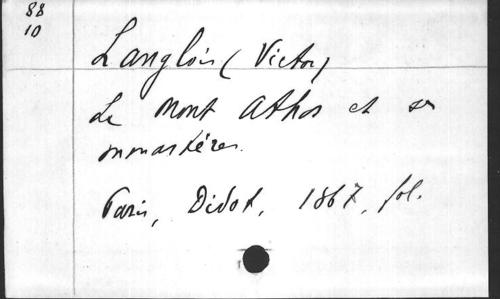 88
10
Langlois (Victor)
Le Mont Athos et ses
monastères.
Paris, Didot, 1867, fol.